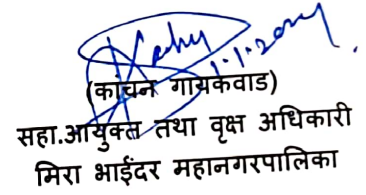 1.1.2024
(कांचन गायकवाड)
सहा.आयुक्त तथा वृक्ष अधिकारी
मिरा भाईंदर महानगरपालिका